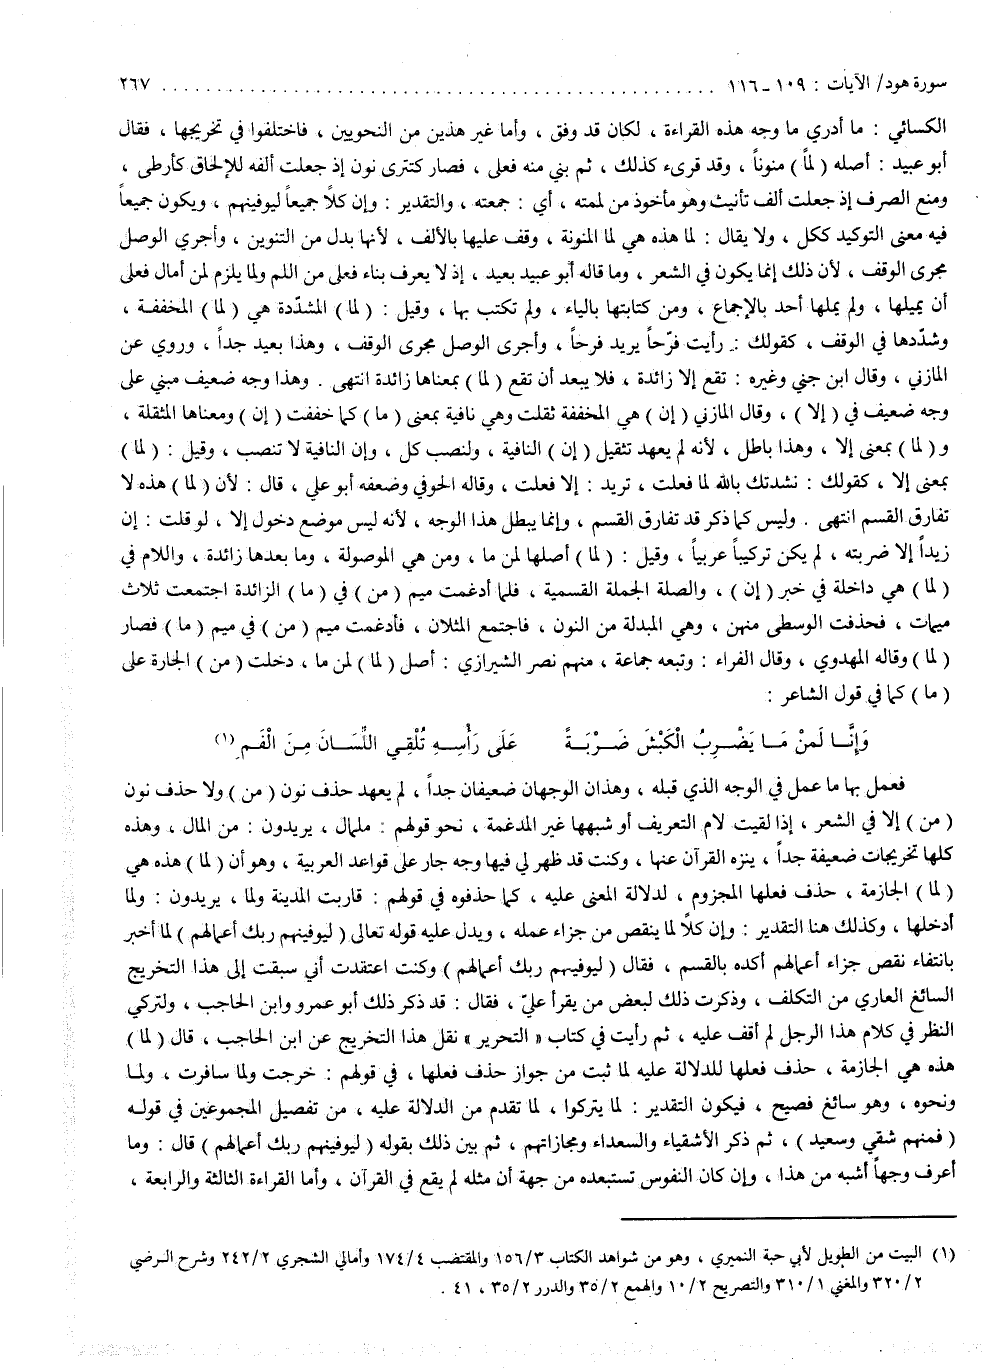 سورة هود/ الآيات : ١٠٩ ـ ١١٦ ........................................................ ٢٦٧
الكسائي : ما أدري ما وجه هذه القراءة ، لكان قد وفق ، وأما غير هذين من النحويين ، فاختلفوا في تخريجها ، فقال
أبو عبيد : أصله ( لماً ) منوناً ، وقد قرىء كذلك ، ثم بني منه فعلى ، فصار كتترى نون إذ جعلت ألفه للإلحاق كأرطى ،
ومنع الصرف إذ جعلت ألف تأنيث وهو مأخوذ من لممته ، أي : جمعته ، والتقدير : وإن كلاً جميعاً ليوفينهم ، ويكون جميعاً
فيه معنى التوكيد ككل ، ولا يقال : لما هذه هي لما المنونة ، وقف عليها بالألف ، لأنها بدل من التنوين ، وأجري الوصل
مجرى الوقف ، لأن ذلك إنما يكون في الشعر ، وما قاله أبو عبيد بعيد ، إذ لا يعرف بناء فعلى من اللم ولما يلزم لمن أمال فعلى
أن يميلها ، ولم يملها أحد بالإجماع ، ومن كتابتها بالياء ، ولم تكتب بها ، وقيل : ( لما ) المشدّدة هي ( لما ) المخففة ،
وشدّدها في الوقف ، كقولك : رأيت فرّحاً يريد فرحاً ، وأجرى الوصل مجرى الوقف ، وهذا بعيد جداً ، وروي عن
المازني ، وقال ابن جني وغيره : تقع إلا زائدة ، فلا يبعد أن تقع ( لما ) بمعناها زائدة انتهى . وهذا وجه ضعيف مبني على
وجه ضعيف في ( إلا ) ، وقال المازني ( إن ) هي المخففة ثقلت وهي نافية بمعنى ( ما ) كما خففت ( إن ) ومعناها المثقلة ،
و ( لما ) بمعنى إلا ، وهذا باطل ، لأنه لم يعهد تثقيل ( إن ) النافية ، ولنصب كل ، وإن النافية لا تنصب ، وقيل : ( لما )
بمعنى إلا ، كقولك : نشدتك بالله لما فعلت ، تريد : إلا فعلت ، وقاله الحوفي وضعفه أبو علي ، قال : لأن ( لما ) هذه لا
تفارق القسم انتهى . وليس كما ذكر قد تفارق القسم ، وإنما يبطل هذا الوجه ، لأنه ليس موضع دخول إلا ، لو قلت : إن
زيداً إلا ضربته ، لم يكن تركيباً عربياً ، وقيل : ( لما ) أصلها لمن ما ، ومن هي الموصولة ، وما بعدها زائدة ، واللام في
( لما ) هي داخلة في خبر ( إن ) ، والصلة الجملة القسمية ، فلما أدغمت ميم ( من ) في ( ما ) الزائدة اجتمعت ثلاث
ميمات ، فحذفت الوسطى منهن ، وهي المبدلة من النون ، فاجتمع المثلان ، فأدغمت ميم ( من ) في ميم ( ما ) فصار
( لما ) وقاله المهدوي ، وقال الفراء : وتبعه جماعة ، منهم نصر الشيرازي : أصل ( لما ) لمن ما ، دخلت ( من ) الجارة على
( ما ) كما في قول الشاعر :
وَإِنَّـا لَمنْ مَـا يَضْـرِبُ الْكَبْشَ ضَـرْبَـةً عَلَى رَأْسِـهِ تُلْقِي اللِّسَـانَ مِـنَ الْفَـمِ (١)
فعمل بها ما عمل في الوجه الذي قبله ، وهذان الوجهان ضعيفان جداً ، لم يعهد حذف نون ( من ) ولا حذف نون
( من ) إلا في الشعر ، إذا لقيت لام التعريف أو شبهها غير المدغمة ، نحو قولهم : ملمال ، يريدون : من المال ، وهذه
كلها تخريجات ضعيفة جداً ، ينزه القرآن عنها ، وكنت قد ظهر لي فيها وجه جار على قواعد العربية ، وهو أن ( لما ) هذه هي
( لما ) الجازمة ، حذف فعلها المجزوم ، لدلالة المعنى عليه ، كما حذفوه في قولهم : قاربت المدينة ولما ، يريدون : ولما
أدخلها ، وكذلك هنا التقدير : وإن كلاً لما ينقص من جزاء عمله ، ويدل عليه قوله تعالى ( ليوفينهم ربك أعمالهم ) لما أخبر
بانتفاء نقص جزاء أعمالهم أكده بالقسم ، فقال ( ليوفينهم ربك أعمالهم ) وكنت اعتقدت أني سبقت إلى هذا التخريج
السائغ العاري من التكلف ، وذكرت ذلك لبعض من يقرأ عليّ ، فقال : قد ذكر ذلك أبو عمرو وابن الحاجب ، ولتركي
النظر في كلام هذا الرجل لم أقف عليه ، ثم رأيت في كتاب « التحرير » نقل هذا التخريج عن ابن الحاجب ، قال ( لما )
هذه هي الجازمة ، حذف فعلها للدلالة عليه لما ثبت من جواز حذف فعلها ، في قولهم : خرجت ولما سافرت ، ولما
ونحوه ، وهو سائغ فصيح ، فيكون التقدير : لما يتركوا ، لما تقدم من الدلالة عليه ، من تفصيل المجموعين في قوله
( فمنهم شقي وسعيد ) ، ثم ذكر الأشقياء والسعداء ومجازاتهم ، ثم بين ذلك بقوله ( ليوفينهم ربك أعمالهم ) قال : وما
أعرف وجهاً أشبه من هذا ، وإن كان النفوس تستبعده من جهة أن مثله لم يقع في القرآن ، وأما القراءة الثالثة والرابعة ،
(١) البيت من الطويل لأبي حبة النميري ، وهو من شواهد الكتاب ١٥٦/٣ والمقتضب ١٧٤/٤ وأمالي الشجري ٢٤٢/٢ وشرح الرضي
٣٢٠/٢ والمغني ٣١٠/١ والتصريح ١٠/٢ والهمع ٣٥/٢ والدرر ٣٥/٢ ، ٤١ .